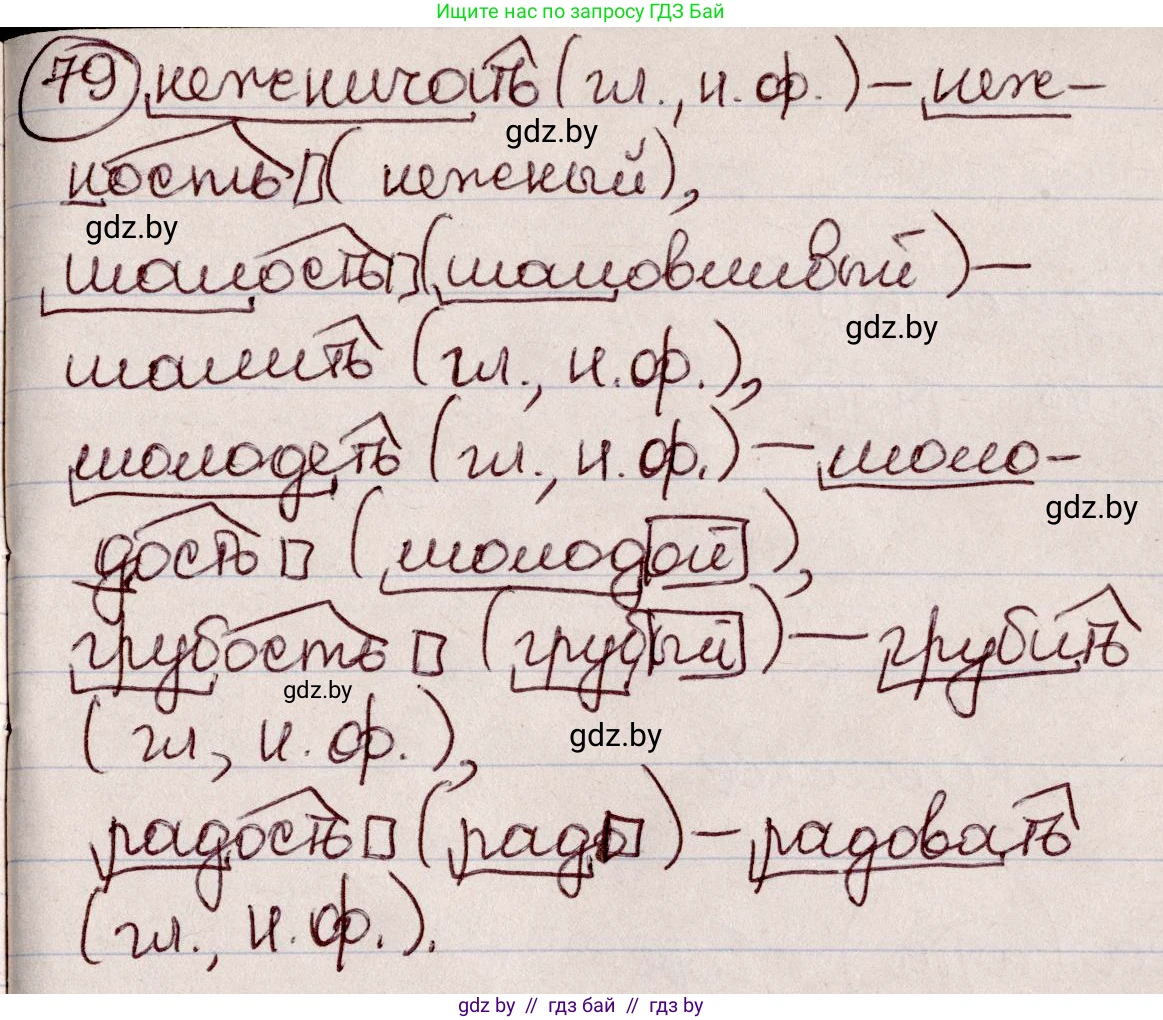 Ищите нас по запросу ГДЗ Бай
79 нежничать (гл., н. ф.) – неж-
gdz.by
ность (нежный),
gdz.by
шалость (шаловливый) –
gdz.by
шалить (гл., н. ф.),
молодеть (гл., н. ф.) – моло-
gdz.by
дость (молодой),
грубость (грубый) – грубить
gdz.by
(гл., н. ф.),
gdz.by
радость (рад) – радовать
(гл., н. ф.).
gdz by // гдз бай // гдз by